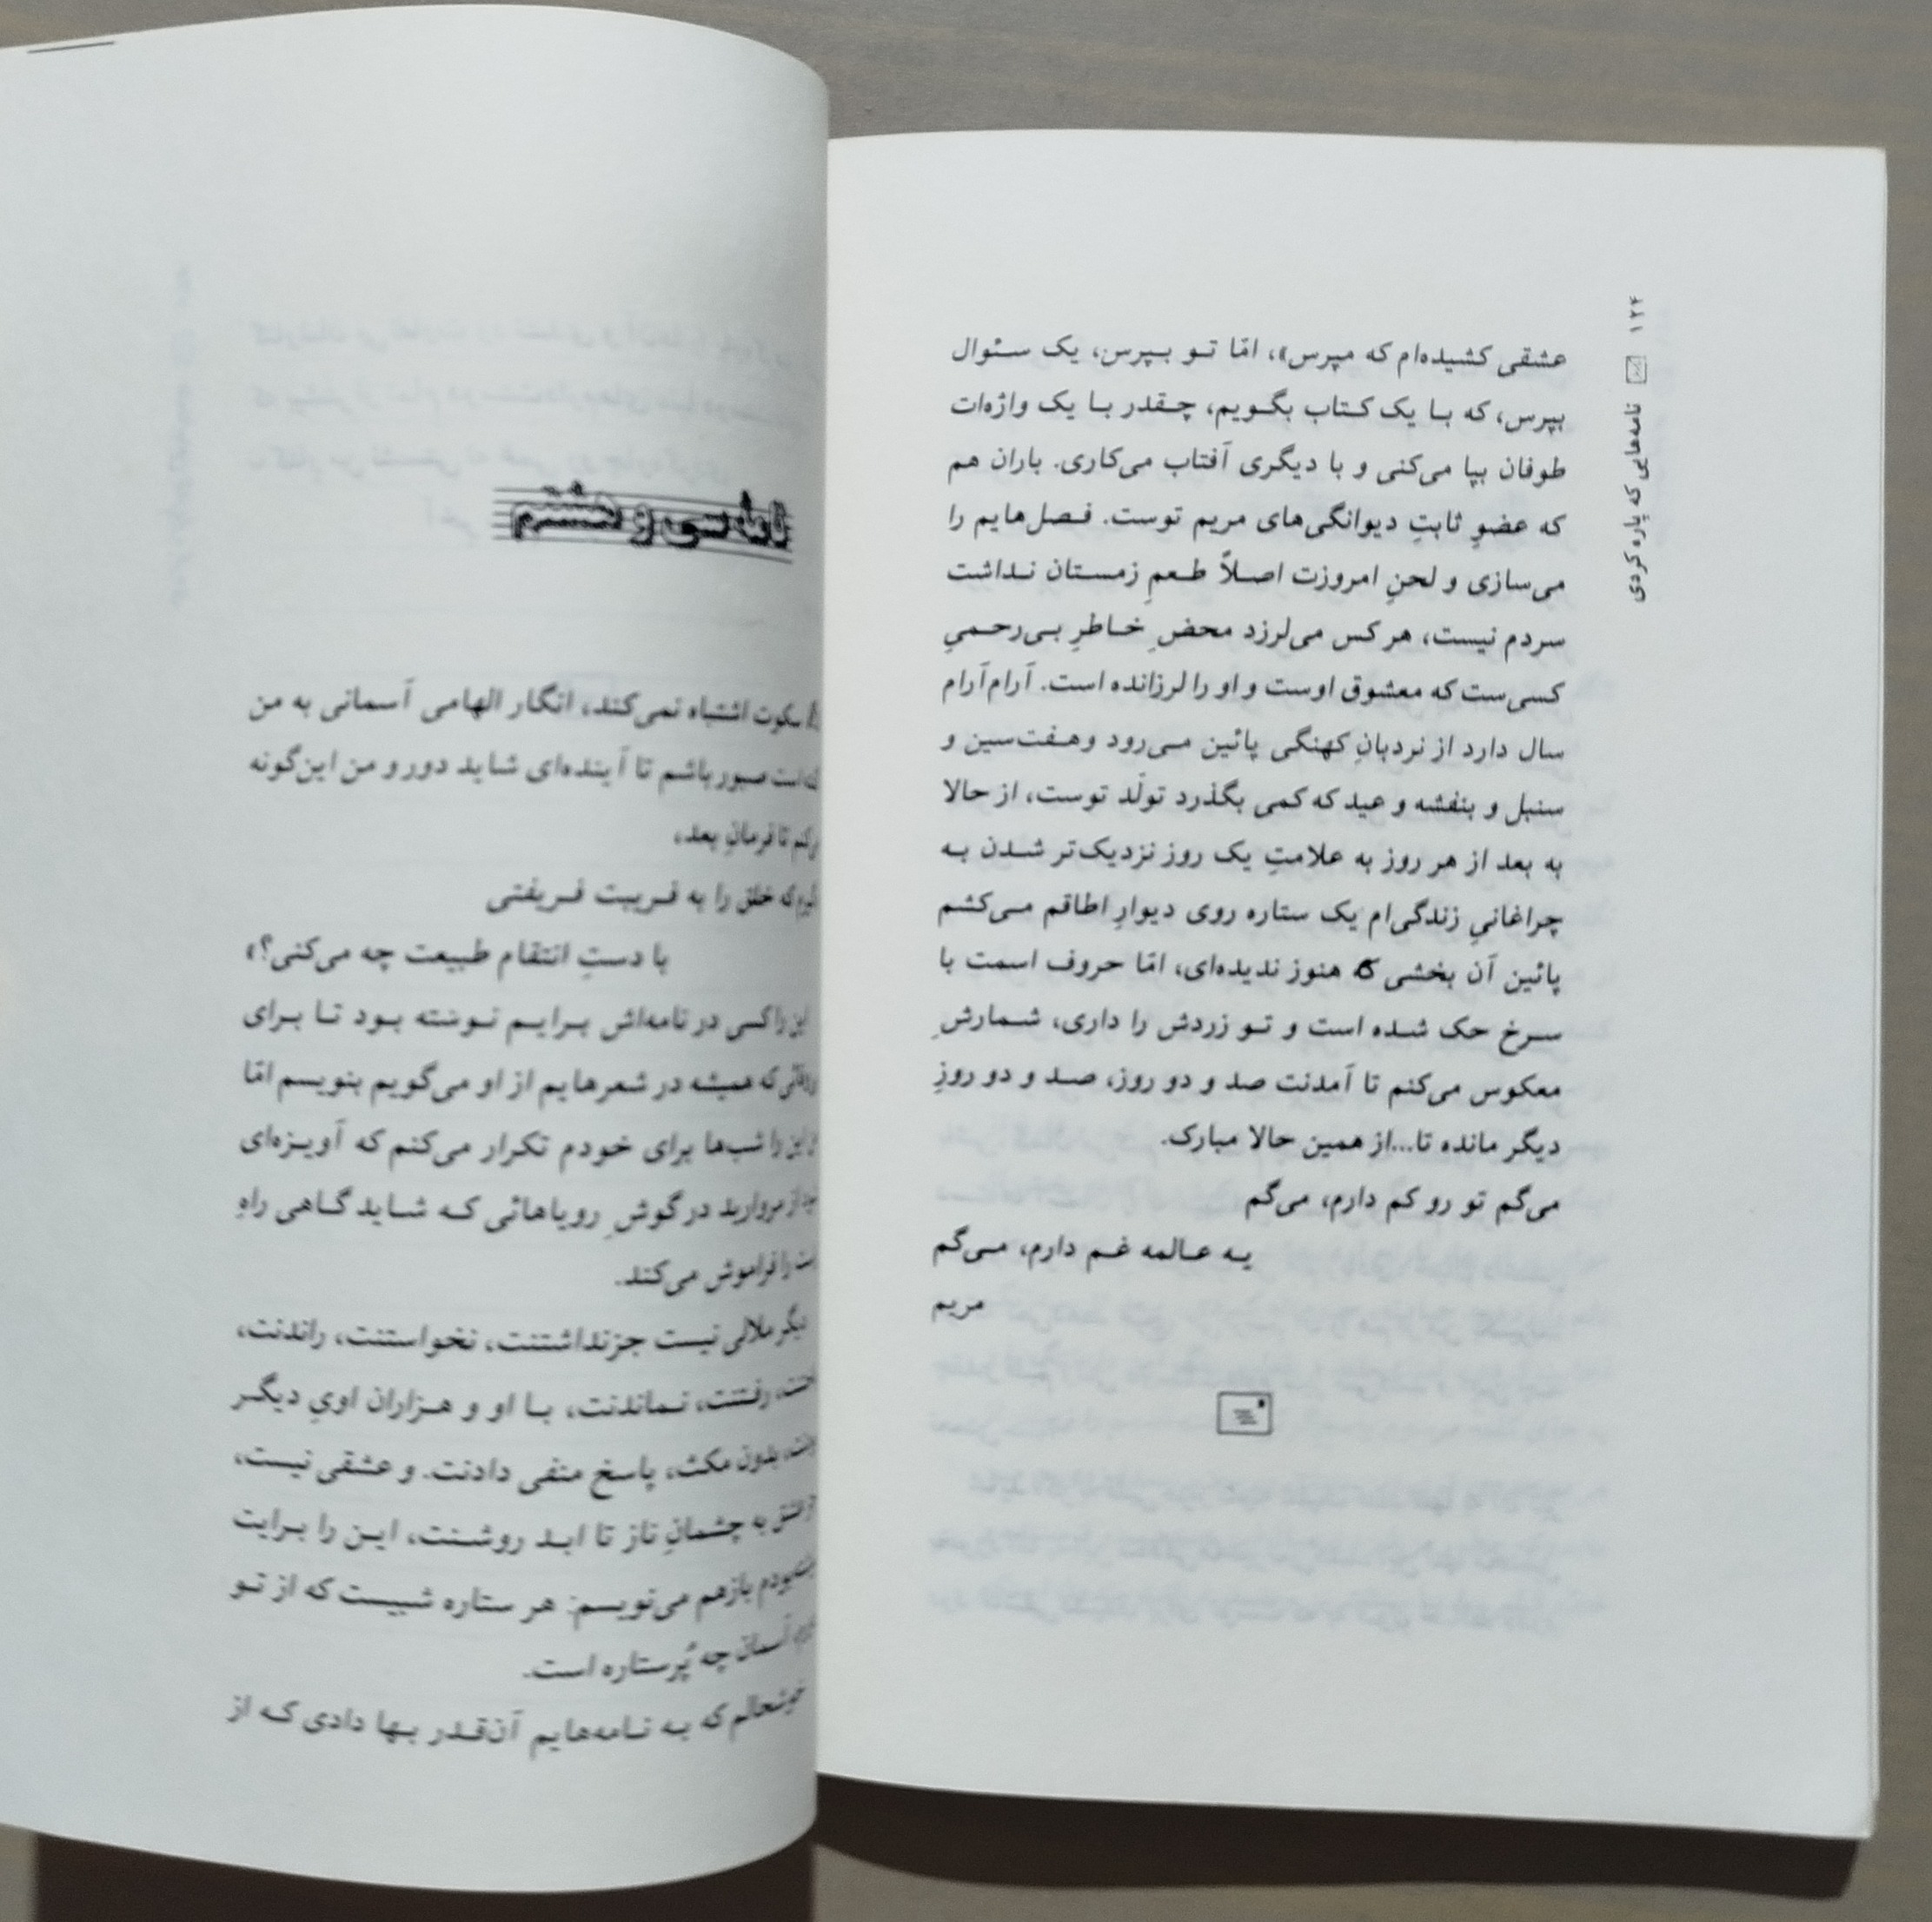 ۱۲۴ نامه‌هایی که پاره کردی
عشقی کشیده‌ام که مپرس»، امّا تو بپرس، یک سئوال
بپرس، که با یک کتاب بگویم، چقدر با یک واژه‌ات
طوفان بپا می‌کنی و با دیگری آفتاب می‌کاری. باران هم
که عضوِ ثابتِ دیوانگی‌های مریم توست. فصل‌هایم را
می‌سازی و لحنِ امروزت اصلاً طعمِ زمستان نداشت
سردم نیست، هر کس می‌لرزد محضِ خاطرِ بی‌رحمیِ
کسی‌ست که معشوق اوست و او را لرزانده است. آرام‌آرام
سال دارد از نردبانِ کهنگی پائین می‌رود و هفت‌سین و
سنبل و بنفشه و عید که کمی بگذرد تولّد توست، از حالا
به بعد از هر روز به علامتِ یک روز نزدیک‌تر شدن به
چراغانیِ زندگی‌ام یک ستاره روی دیوارِ اطاقم می‌کشم
پائین آن بخشی که هنوز ندیده‌ای، امّا حروف اسمت با
سرخ حک شده است و تو زردش را داری، شمارشِ
معکوس می‌کنم تا آمدنت صد و دو روز، صد و دو روزِ
دیگر مانده تا...از همین حالا مبارک.
می‌گم تو رو کم دارم، می‌گم
یه عالمه غم دارم، می‌گم
مریم
نامه سی و هشتم
سکوت اشتباه نمی‌کند، انگار الهامی آسمانی به من
است صبور باشم تا آینده‌ای شاید دور و من این‌گونه
تا فرمانِ بعد،
که خلق را به فریبت فریفتی
با دستِ انتقام طبیعت چه می‌کنی؟»
این را کسی در نامه‌اش برایم نوشته بود تا برای
که همیشه در شعرهایم از او می‌گویم بنویسم امّا
این را شب‌ها برای خودم تکرار می‌کنم که آویزه‌ای
از مروارید در گوشِ رویاهائی که شاید گاهی راهِ
را فراموش می‌کند.
دیگر ملالی نیست جز نداشتنت، نخواستنت، راندنت،
رفتنت، نماندنت، با او و هزاران اویِ دیگر
بدون مکث، پاسخ منفی دادنت. و عشقی نیست،
عشق به چشمانِ ناز تا ابد روشنت، این را برایت
بودم بازهم می‌نویسم: هر ستاره شبیست که از تو
آسمان چه پُرستاره است.
خوشحالم که به نامه‌هایم آن‌قدر بها دادی که از